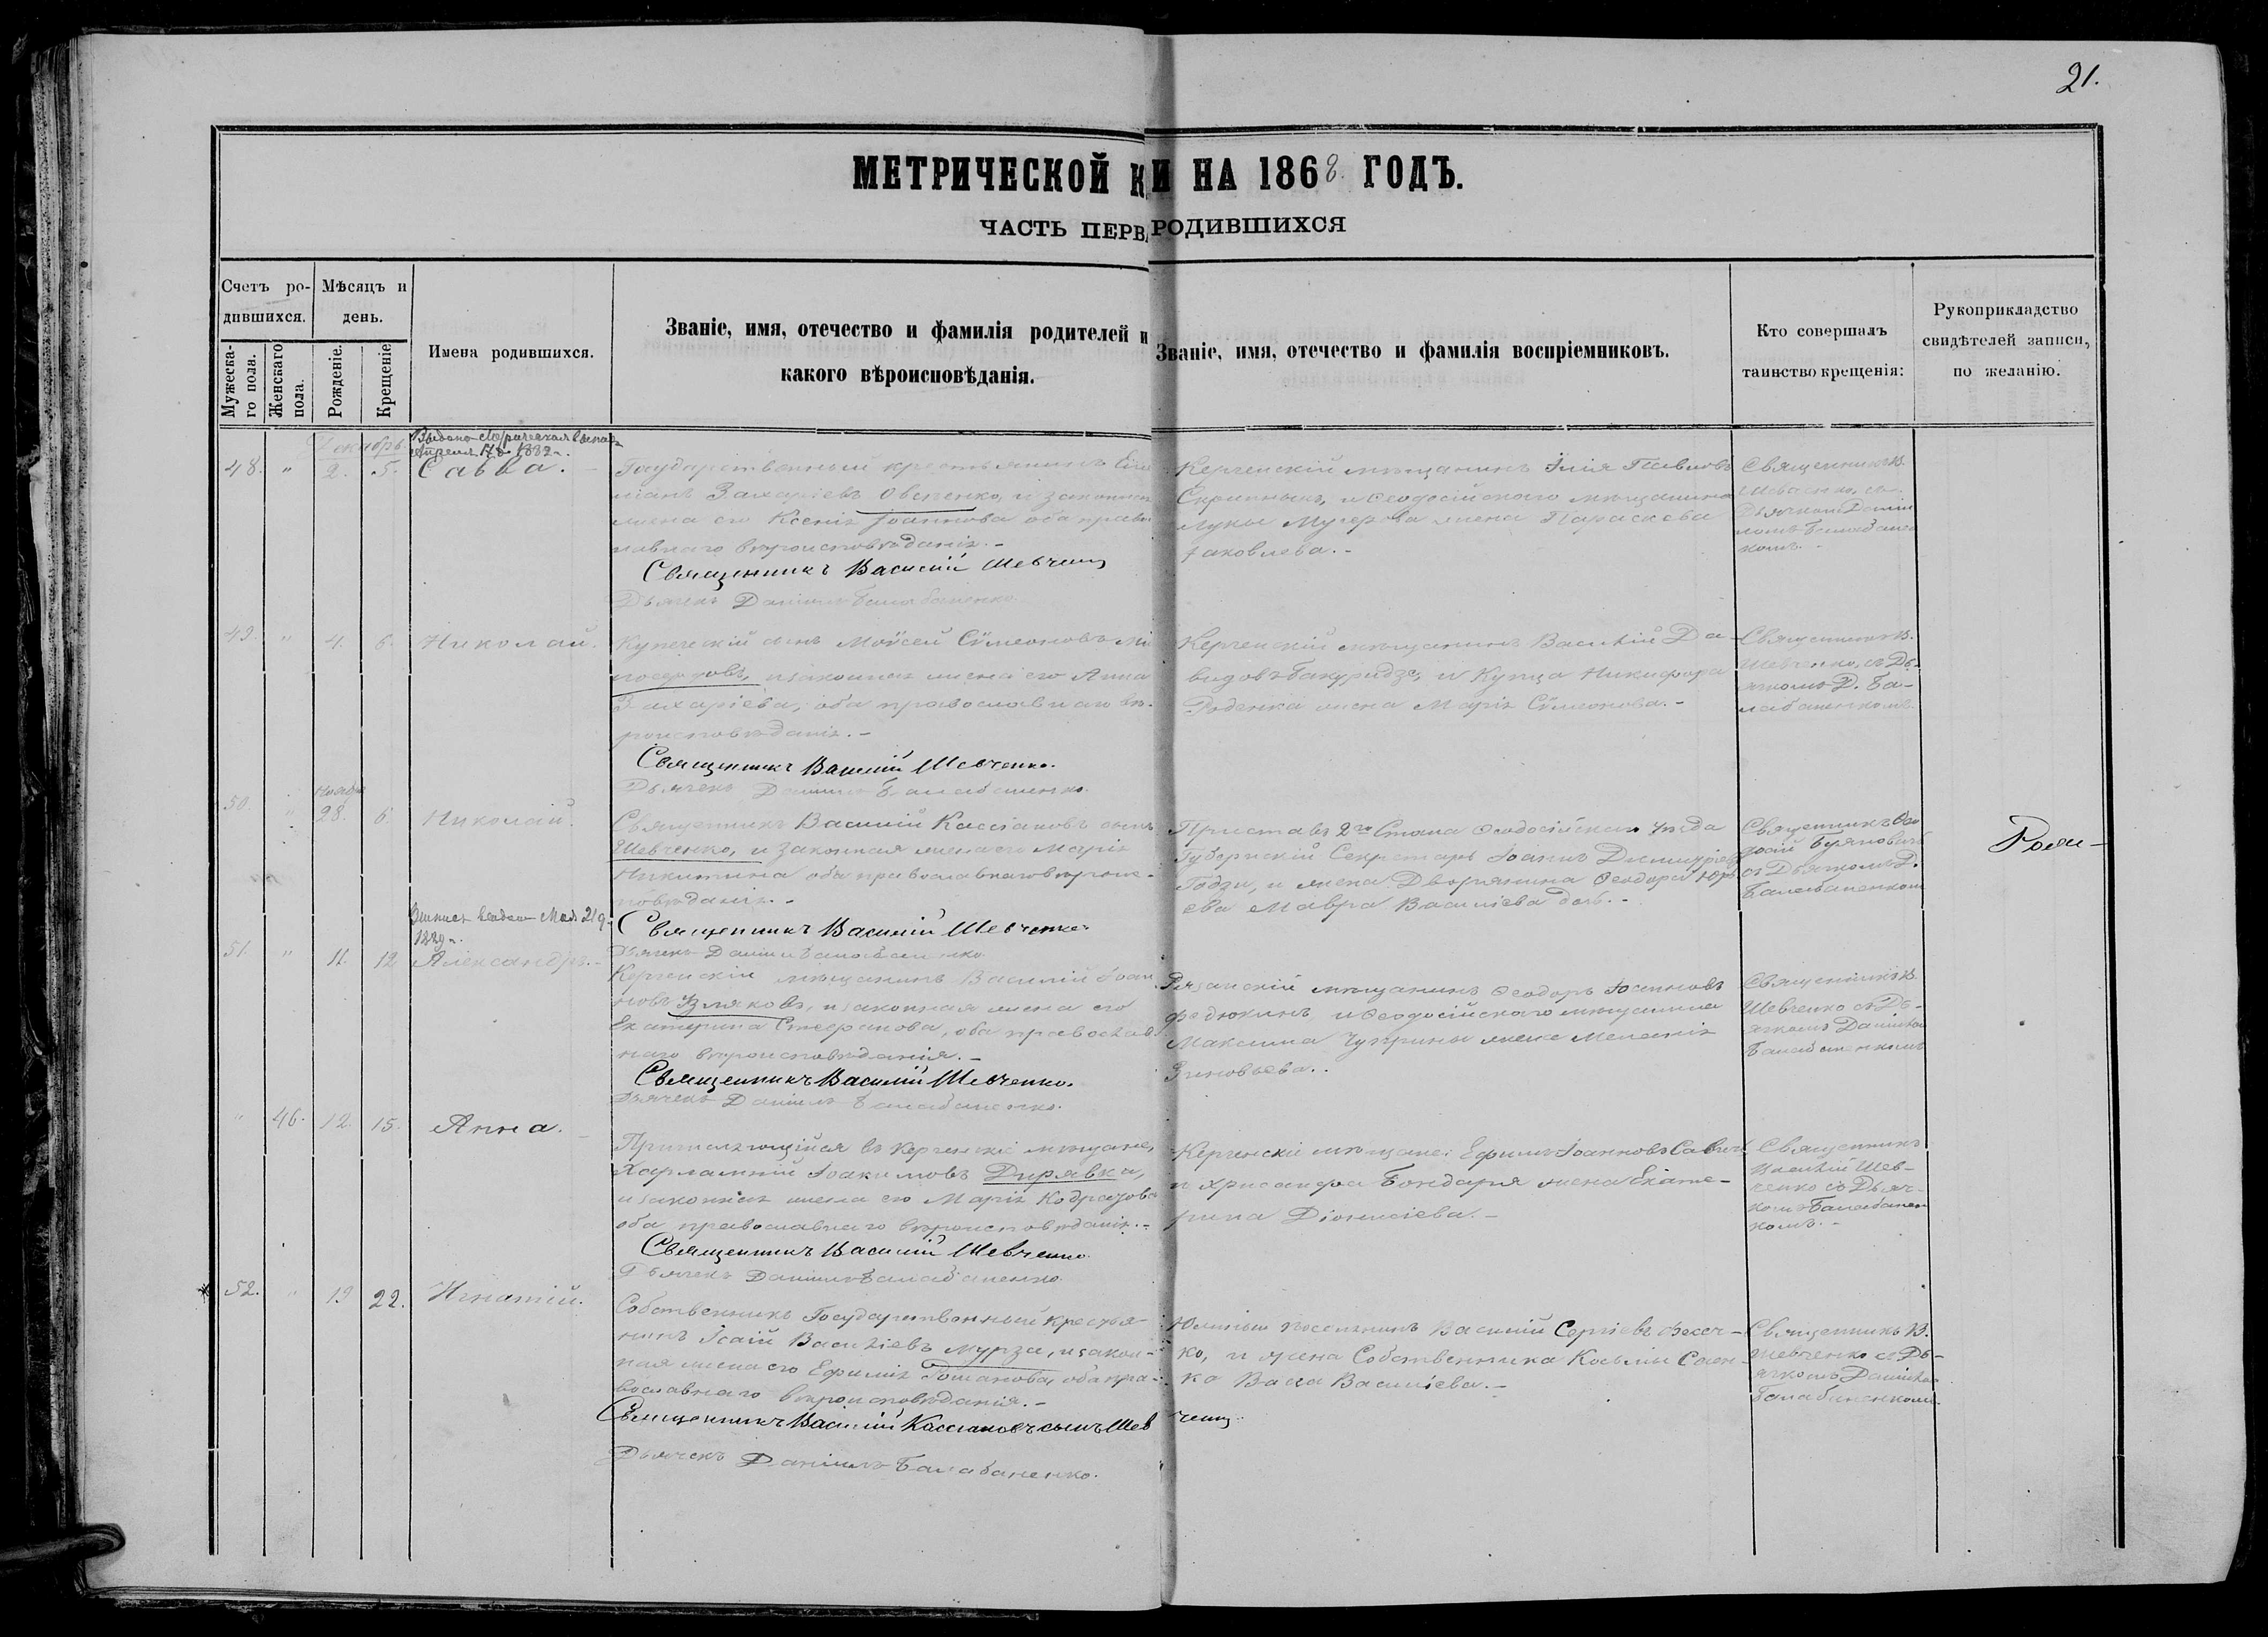 21.
МЕТРИЧЕСКОЙ К
И НА 1868 ГОДЪ.
ЧАСТЬ ПЕРВ
РОДИВШИХСЯ
Счетъ ро-
дившихся.
Мужеска-
го пола.
Женскаго
пола.
Мѣсяцъ и
день.
Рожденіе.
Крещеніе
Имена родившихся.
Званіе, имя, отечество и фамилія родителей и
какого вѣроисповѣданія.
Званіе, имя, отечество и фамилія воспріемниковъ.
Кто совершалъ
таинство крещенія:
Рукоприкладство
свидѣтелей записи,
по желанію.
Декабрь
48. " 2. 5. Савва.
Государственный крестьянинъ
Захаріевъ Овсіенко, и законная
жена его Ксенія Іоаннова оба право
славнаго вѣроисповѣданія.-
Священникъ Василій Шевченко
Дьячекъ Даніилъ Балабаненко
Керченскій мѣщанинъ Илія Павловъ
и Ѳеодосійскаго мѣщанина
Луки жена Параскева
Іаковлева.-
Священникъ В.
Шевченко, съ
Дьячкомъ Даніи
ломъ Балабанен
комъ.-
49. " 4. 6. Николай.
Купеческій сынъ Моѵсей Сѵмеоновъ
и законная жена его Анна
Захаріева, оба православнаго вѣ-
роисповѣданія.-
Священникъ Василій Шевченко.
Дьячекъ Даніилъ Балабаненко.
Керченскій мѣщанинъ Василій Да-
видовъ Бакуридзе, и Купца Никифора
Роденка жена Марія Сѵмеонова.-
Священникъ В.
Шевченко, съ Дь-
ячкомъ Д. Ба-
лабаненкомъ.
Ноября
50. " 28. 6. Николай.
Священникъ Василій Кассіановъ сынъ
Шевченко, и законная жена его Марія
Никитина оба православнаго вѣроис-
повѣданія.-
Священникъ Василій Шевченко
Дьячекъ Даніилъ Балабаненко
Приставъ 2го Стана Ѳеодосійскаго Уѣзда
Губернскій Секретарь Іоаннъ Димитріевъ
Годзи, и жена Дворянина Ѳеодора Юрь
ева Мавра Василіева дочь.-
Священникъ Ѳео
досій Буяновичъ
съ Дьячкомъ Д.
Балабаненкомъ
51. " 11. 12. Александръ.-
Керченскій мѣщанинъ Василій Іоан
новъ Зляковъ, и законная жена его
Екатерина Стефанова, оба православ
наго вѣроисповѣданія.-
Священникъ Василій Шевченко.
Дьячекъ Даніилъ Балабаненко.
Рязанскій мѣщанинъ Ѳеодоръ Іоанновъ
Федюкинъ, и Ѳеодосійскаго мѣщанина
Максима Чуприны жена Меланія
Зиновьева..
Священникъ В.
Шевченко съ Дь-
ячкомъ Даніиломъ
Балабаненкомъ
" 46. 12. 15. Анна.
въ Керченскіе мѣщане,
Харлампій Іоакимовъ Дирявка,
и законная жена его Марія
оба православнаго вѣроисповѣданія.-
Священникъ Василій Шевченко
Дьячекъ Даніилъ Балабаненко
Керченскіе мѣщане: Ефимъ Іоанновъ
и Хрисанфа Бондаря жена Екате-
рина Діонисіева.-
Священникъ
Василій Шев-
ченко съ Дьяч-
комъ Балабанен
комъ.-
52. " 19 22. Игнатій.
Собственникъ Государственный крестья-
нинъ Исаій Василіевъ Мурза, и закон-
ная жена его Ефимія Романова, оба пра-
вославнаго вѣроисповѣданія.-
Священникъ Василій Кассіановъ сынъ Шевченко
Дьячекъ Даніилъ Балабаненко.
поселянинъ Василій Сергіевъ
ко, и жена Собственника Косьмы Саен-
ко Васса Василіева.-
Священникъ В.
Шевченко съ Дь-
ячкомъ Даніиломъ
Балабаненкомъ